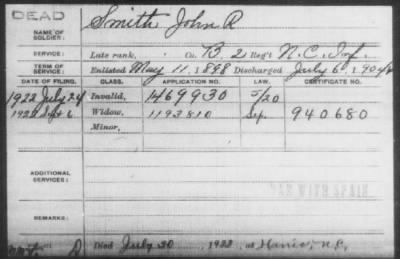 DEAD
NAME OF SOLDIER: Smith, John R
SERVICE: Late rank, Co. B, 2 Reg't N.C. Inf.
TERM OF SERVICE: Enlisted May 11, 1898 Discharged July 6, 190
DATE OF FILING. CLASS. APPLICATION NO. LAW. CERTIFICATE NO.
1922 July 24 Invalid, 1469930 5/20
Sept 6 Widow, 1193810 Sep. 940680
Minor,
ADDITIONAL SERVICES:
WAR WITH SPAIN
REMARKS:
Died July 30, 1922, at N.C.